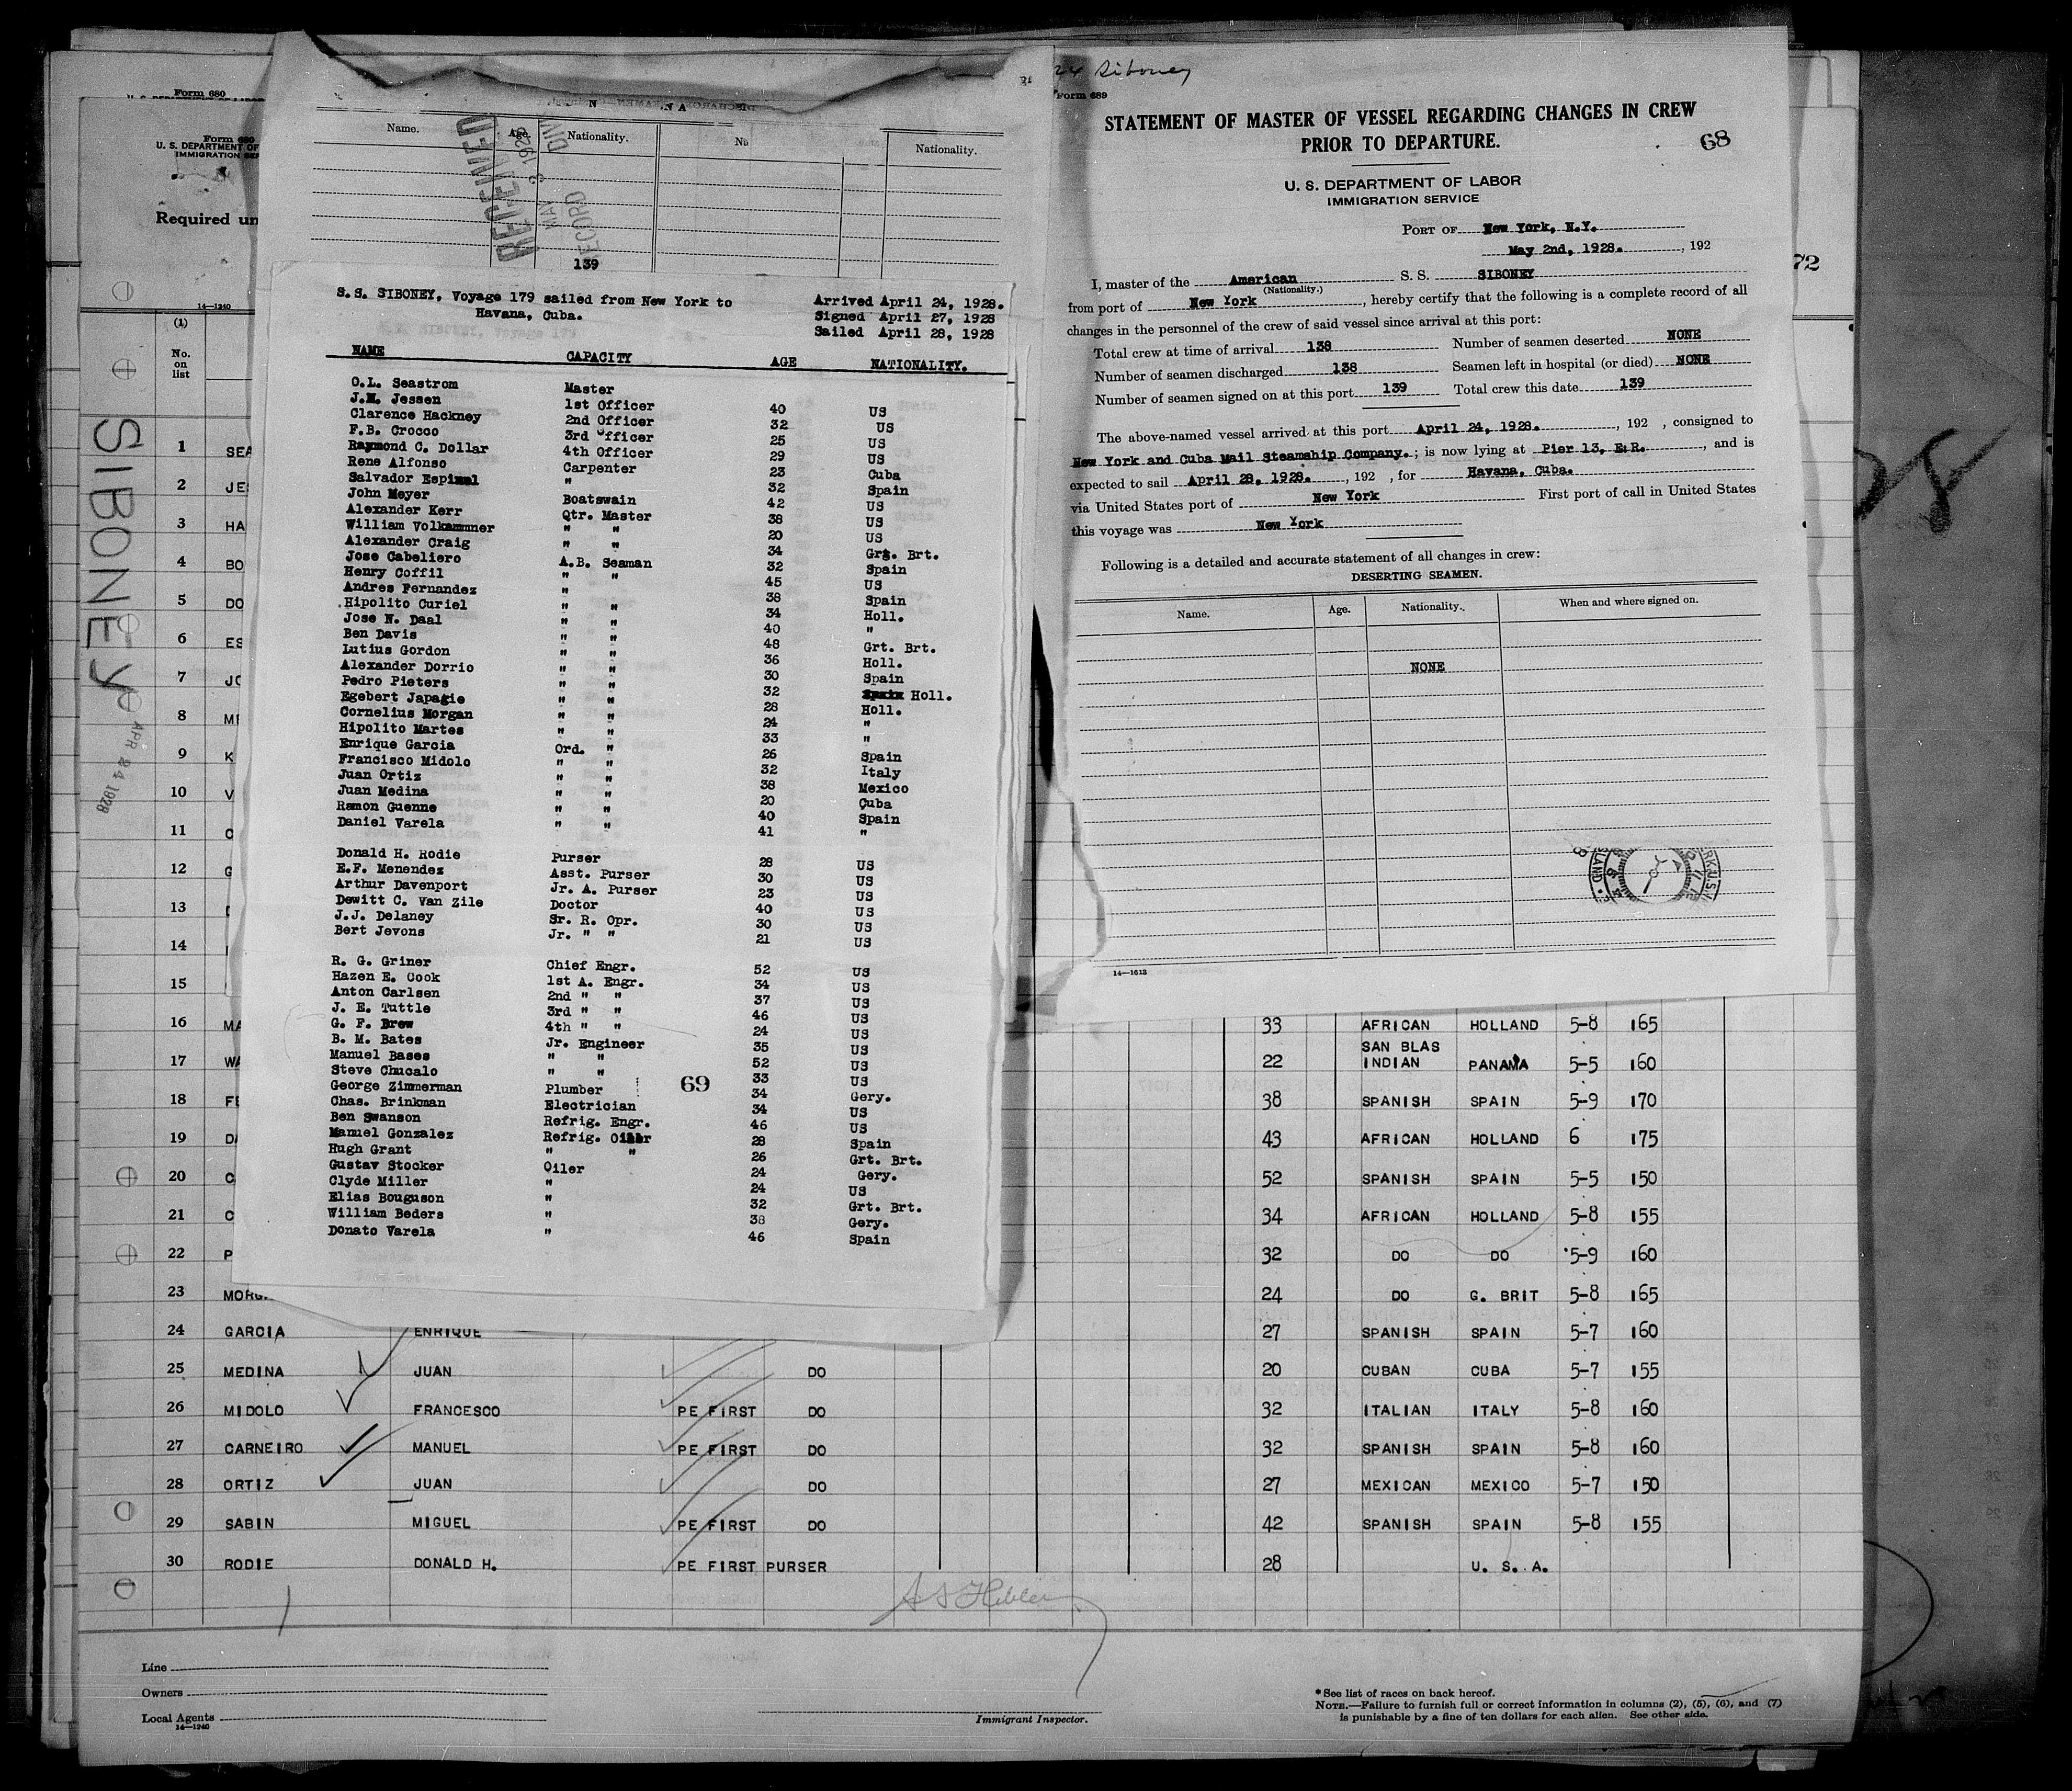 Form 680
Form 680
U. S. DEPARTMENT OF
IMMIGRATION SER
Required un
14—1240
(1)
No.
on
list
SIBONEY
APR 24 1928
Name. Age. Nationality. Na Nationality.
RECEIVED
MAY 3 1928
RECORD DIV
139
S.S. SIBONEY, Voyage 179 sailed from New York to
Havana, Cuba.
Arrived April 24, 1928.
Signed April 27, 1928
Sailed April 28, 1928
NAME CAPACITY AGE NATIONALITY.
O.L. Seastrom Master
J.M. Jessen 1st Officer 40 US
Clarence Hackney 2nd Officer 32 US
F.B. Crocco 3rd Officer 25 US
Raymond C. Dollar 4th Officer 29 US
Rene Alfonso Carpenter 23 Cuba
Salvador Espinal " 32 Spain
John Meyer Boatswain 42 US
Alexander Kerr Qtr. Master 38 US
William Volkammner " " 20 US
Alexander Craig " " 34 Grt. Brt.
Jose Cabeliero A.B. Seaman 32 Spain
Henry Coffil " " 45 US
Andres Fernandez " 38 Spain
Hipolito Curiel " " 34 Holl.
Jose N. Daal " " 40 "
Ben Davis " " 48 Grt. Brt.
Lutius Gordon " " 36 Holl.
Alexander Dorrio " " 30 Spain
Pedro Pieters " " 32 Spain Holl.
Egebert Japagie " " 28 Holl.
Cornelius Morgan " " 24 "
Hipolito Martes " " 33 "
Enrique Garcia Ord. " 26 Spain
Francisco Midolo " " 32 Italy
Juan Ortiz " " 38 Mexico
Juan Medina " " 20 Cuba
Ramon Guenne " " 40 Spain
Daniel Varela " " 41 "
Donald H. Rodie Purser 28 US
E.F. Menendez Asst. Purser 30 US
Arthur Davenport Jr. A. Purser 23 US
Dewitt C. Van Zile Doctor 40 US
J.J. Delaney Sr. R. Opr. 30 US
Bert Jevons Jr. " " 21 US
R. G. Griner Chief Engr. 52 US
Hazen E. Cook 1st A. Engr. 34 US
Anton Carlsen 2nd " " 37 US
J. E. Tuttle 3rd " " 46 US
G. F. Brew 4th " " 24 US
B. M. Bates Jr. Engineer 35 US
Manuel Bases " " 52 US
Steve Chucalo " " 33 US
George Zimmerman Plumber 34 Gery.
Chas. Brinkman Electrician 34 US
Ben Swanson Refrig. Engr. 46 US
Manuel Gonzalez Refrig. Oiler 28 Spain
Hugh Grant " " 26 Grt. Brt.
Gustav Stocker Oiler 24 Gery.
Clyde Miller " 24 US
Elias Bouguson " 32 Grt. Brt.
William Beders " 38 Gery.
Donato Varela " 46 Spain
69
24 Siboney
Form 689
STATEMENT OF MASTER OF VESSEL REGARDING CHANGES IN CREW
PRIOR TO DEPARTURE.
68
U. S. DEPARTMENT OF LABOR
IMMIGRATION SERVICE
PORT OF New York, N.Y.
May 2nd, 1928. , 192
I, master of the American S. S. SIBONEY
(Nationality.)
from port of New York , hereby certify that the following is a complete record of all
changes in the personnel of the crew of said vessel since arrival at this port:
Total crew at time of arrival 138 Number of seamen deserted NONE
Number of seamen discharged 138 Seamen left in hospital (or died) NONE
Number of seamen signed on at this port 139 Total crew this date 139
The above-named vessel arrived at this port April 24, 1928. , 192 , consigned to
New York and Cuba Mail Steamship Company. ; is now lying at Pier 13, E.R. , and is
expected to sail April 28, 1928. , 192 , for Havana, Cuba.
via United States port of New York First port of call in United States
this voyage was New York
Following is a detailed and accurate statement of all changes in crew:
DESERTING SEAMEN.
Name. Age. Nationality. When and where signed on.
NONE
14—1613
72
28
1 SEA
2 JES
3 HA
4 BO
5 DO
6 ES
7 JO
8 ME
9 K
10 V
11
12 G
13
14
15
16 MA 33 AFRICAN HOLLAND 5-8 165
17 WA 22 SAN BLAS INDIAN PANAMA 5-5 160
18 FE 38 SPANISH SPAIN 5-9 170
19 DA 43 AFRICAN HOLLAND 6 175
20 52 SPANISH SPAIN 5-5 150
21 34 AFRICAN HOLLAND 5-8 155
22 P 32 DO DO 5-9 160
23 MORG 24 DO G. BRIT 5-8 165
24 GARCIA ENRIQUE 27 SPANISH SPAIN 5-7 160
25 MEDINA JUAN DO 20 CUBAN CUBA 5-7 155
26 MIDOLO FRANCESCO PE FIRST DO 32 ITALIAN ITALY 5-8 160
27 CARNEIRO MANUEL PE FIRST DO 32 SPANISH SPAIN 5-8 160
28 ORTIZ JUAN DO 27 MEXICAN MEXICO 5-7 150
29 SABIN MIGUEL PE FIRST DO 42 SPANISH SPAIN 5-8 155
30 RODIE DONALD H. PE FIRST PURSER 28 U. S. A.
Line
Owners
Local Agents
14—1240
Immigrant Inspector.
*See list of races on back hereof.
NOTE.—Failure to furnish full or correct information in columns (2), (5), (6), and (7)
is punishable by a fine of ten dollars for each alien. See other side.